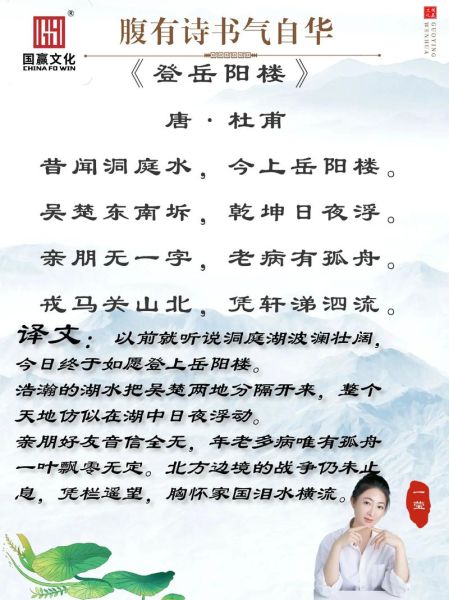 腹有诗书气自华
GUOYING
WENHUA
国赢文化
CHINA FO WIN
《登岳阳楼》
唐·杜甫
昔闻洞庭水，今上岳阳楼。
吴楚东南坼，乾坤日夜浮。
亲朋无一字，老病有孤舟。
戎马关山北，凭轩涕泗流。
译文：以前就听说洞庭湖波澜壮阔，
今日终于如愿登上岳阳楼。
浩瀚的湖水把吴楚两地分隔开来，整个
天地仿似在湖中日夜浮动。
亲朋好友音信全无，年老多病唯有孤舟
一叶飘零无定。北方边境的战争仍未止
息，凭栏遥望，胸怀家国泪水横流。
一莹